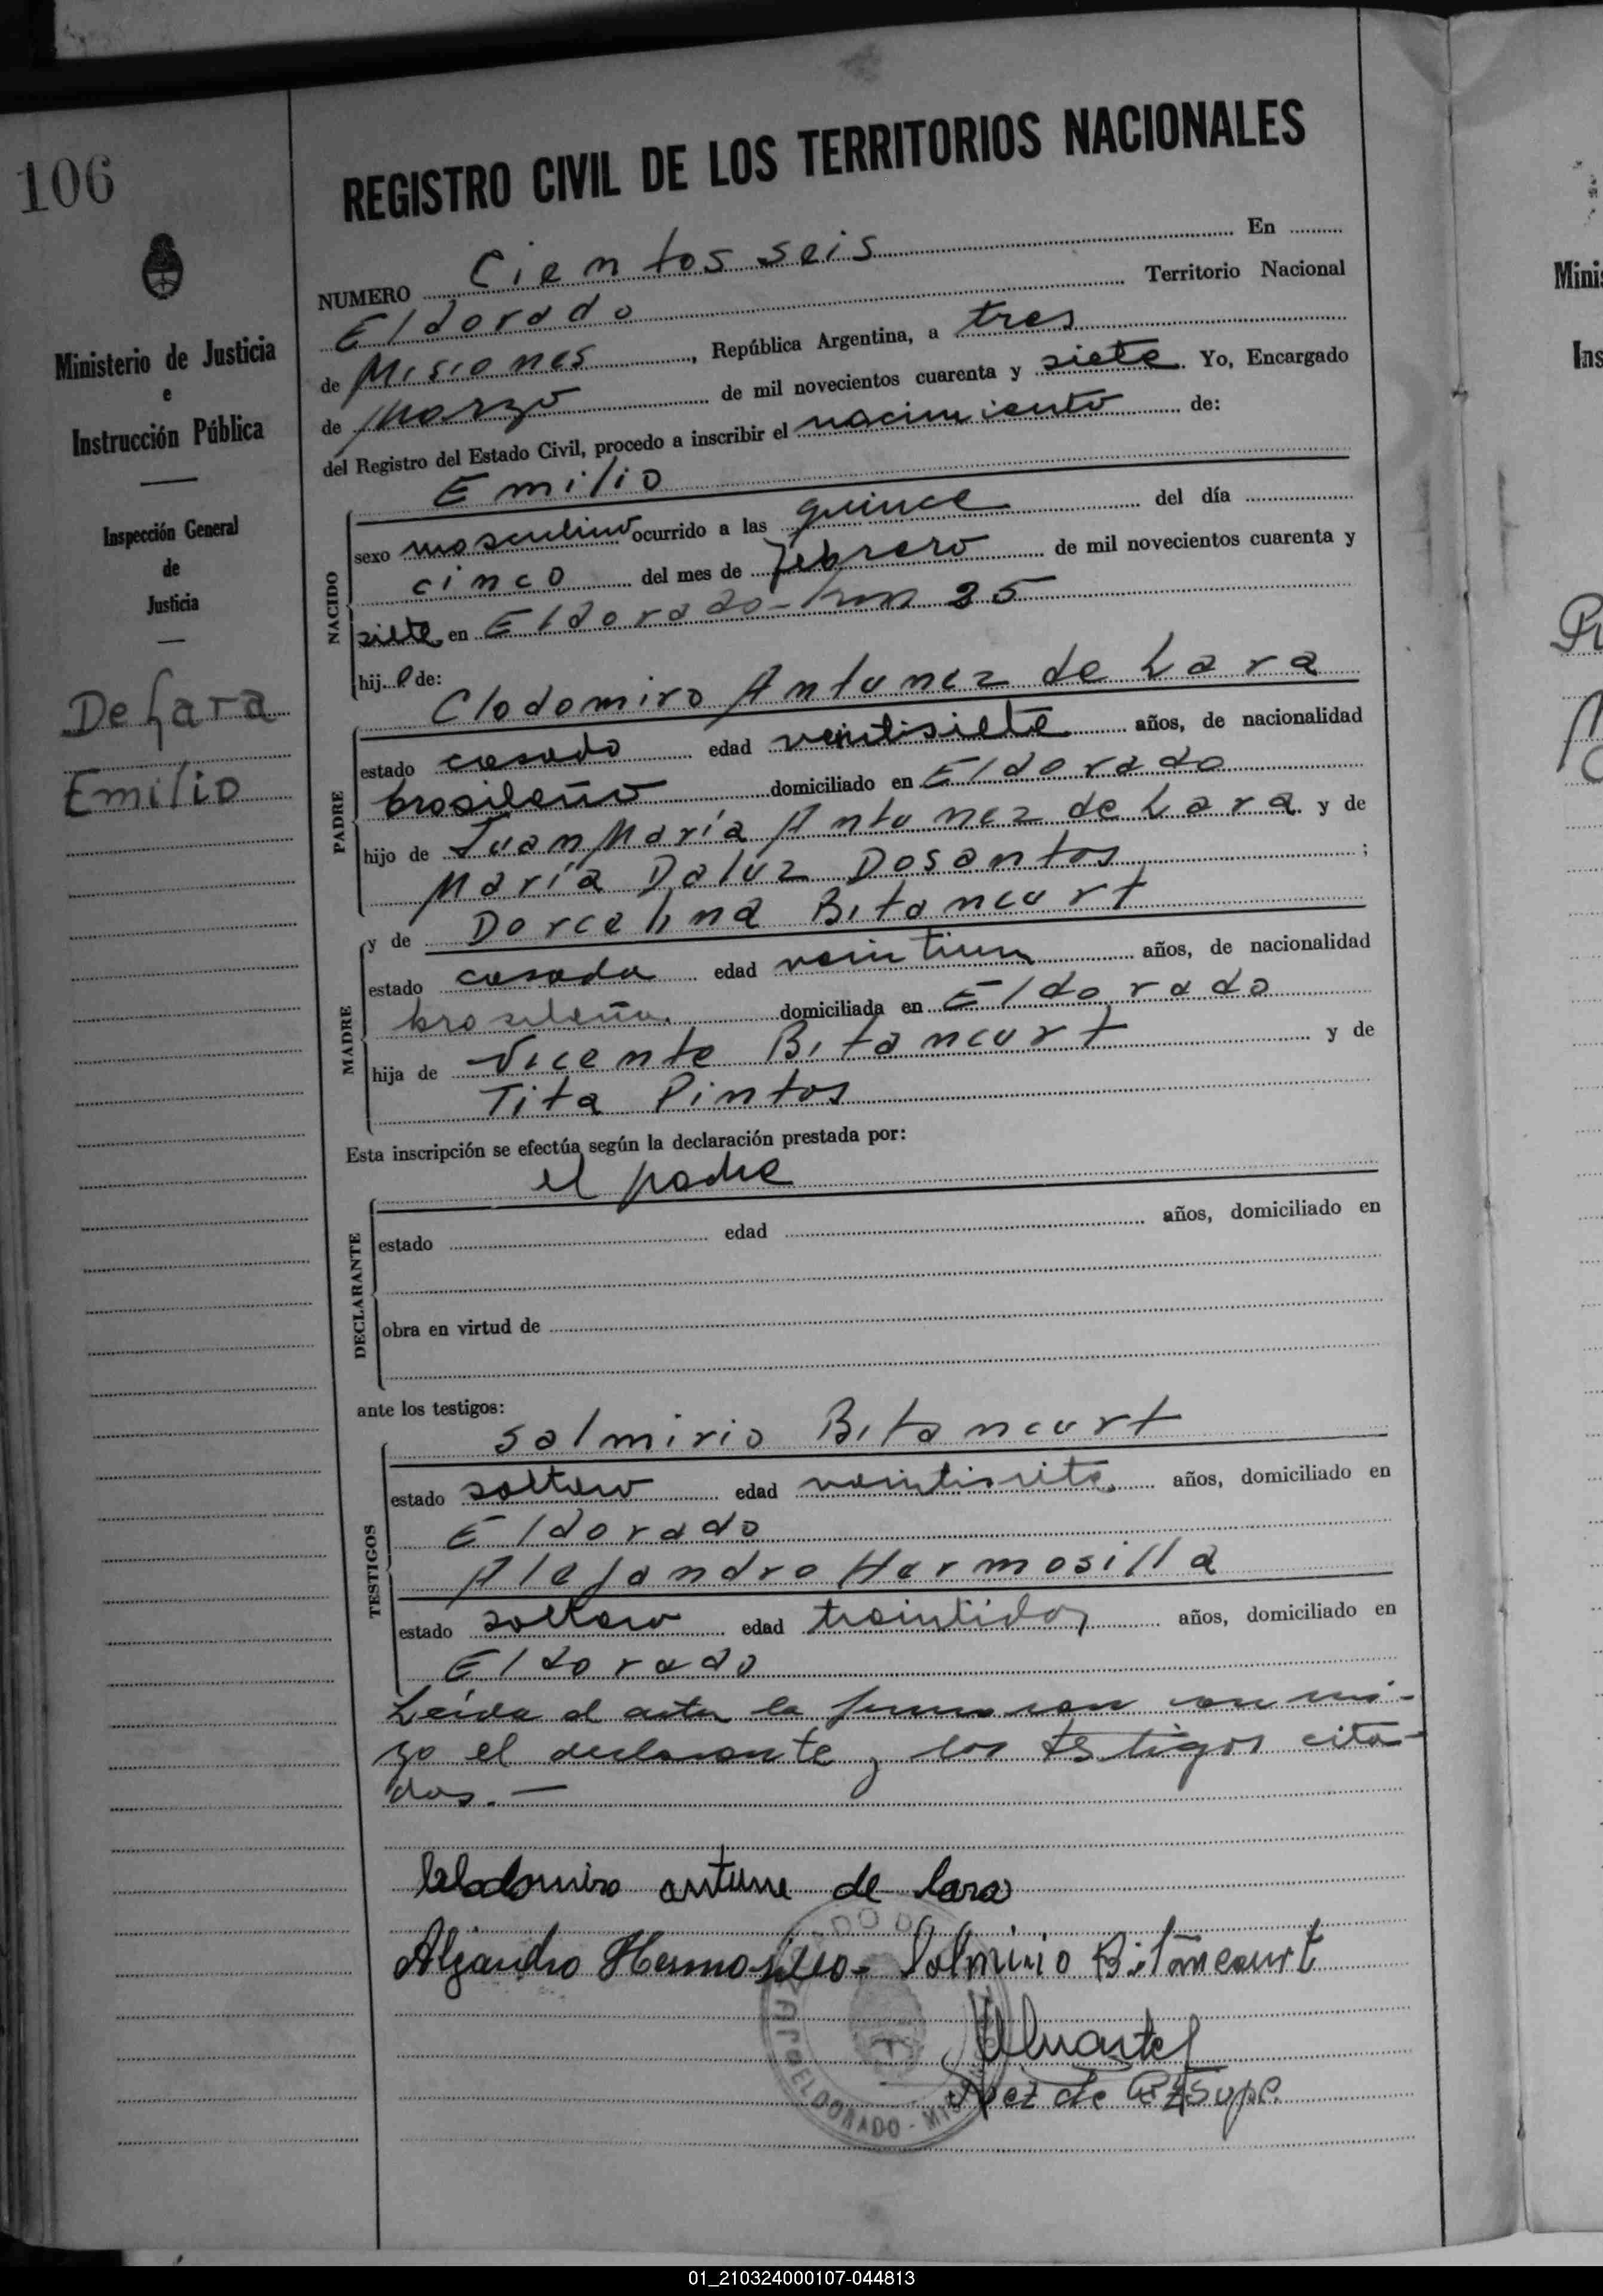 106
Ministerio de Justicia
e
Instrucción Pública
Inspección General
de
Justicia
De Lara
Emilio
REGISTRO CIVIL DE LOS TERRITORIOS NACIONALES
NUMERO Cientos seis En
Eldorado Territorio Nacional
de Misiones, República Argentina, a tres
de Marzo de mil novecientos cuarenta y siete. Yo, Encargado
del Registro del Estado Civil, procedo a inscribir el nacimiento de:
Emilio
NACIDO
sexo masculino ocurrido a las quince del día
cinco del mes de febrero de mil novecientos cuarenta y
siete en Eldorado - km 25
hijo de:
Clodomiro Antunez de Lara
PADRE
estado casado edad veintisiete años, de nacionalidad
brasileño domiciliado en Eldorado
hijo de Juan María Antunez de Lara y de
María Daluz Dosantos ;
y de Dorcelina Bitancurt
MADRE
estado casada edad veintiun años, de nacionalidad
brasileña domiciliada en Eldorado
hija de Vicente Bitancurt y de
Tita Pintos
Esta inscripción se efectúa según la declaración prestada por:
el padre
DECLARANTE
estado edad años, domiciliado en
obra en virtud de
ante los testigos:
Salmirio Bitancurt
TESTIGOS
estado soltero edad veintisiete años, domiciliado en
Eldorado
Alejandro Hermosilla
estado soltero edad treintidos años, domiciliado en
Eldorado
Leida el acta la firman con mi-
go el declarante y los testigos cita-
dos. —
antune de Lara
Alejandro Salmirio Bitancourt
Juez de Paz Supl.
ELDORADO - MIS
01_210324000107-044813